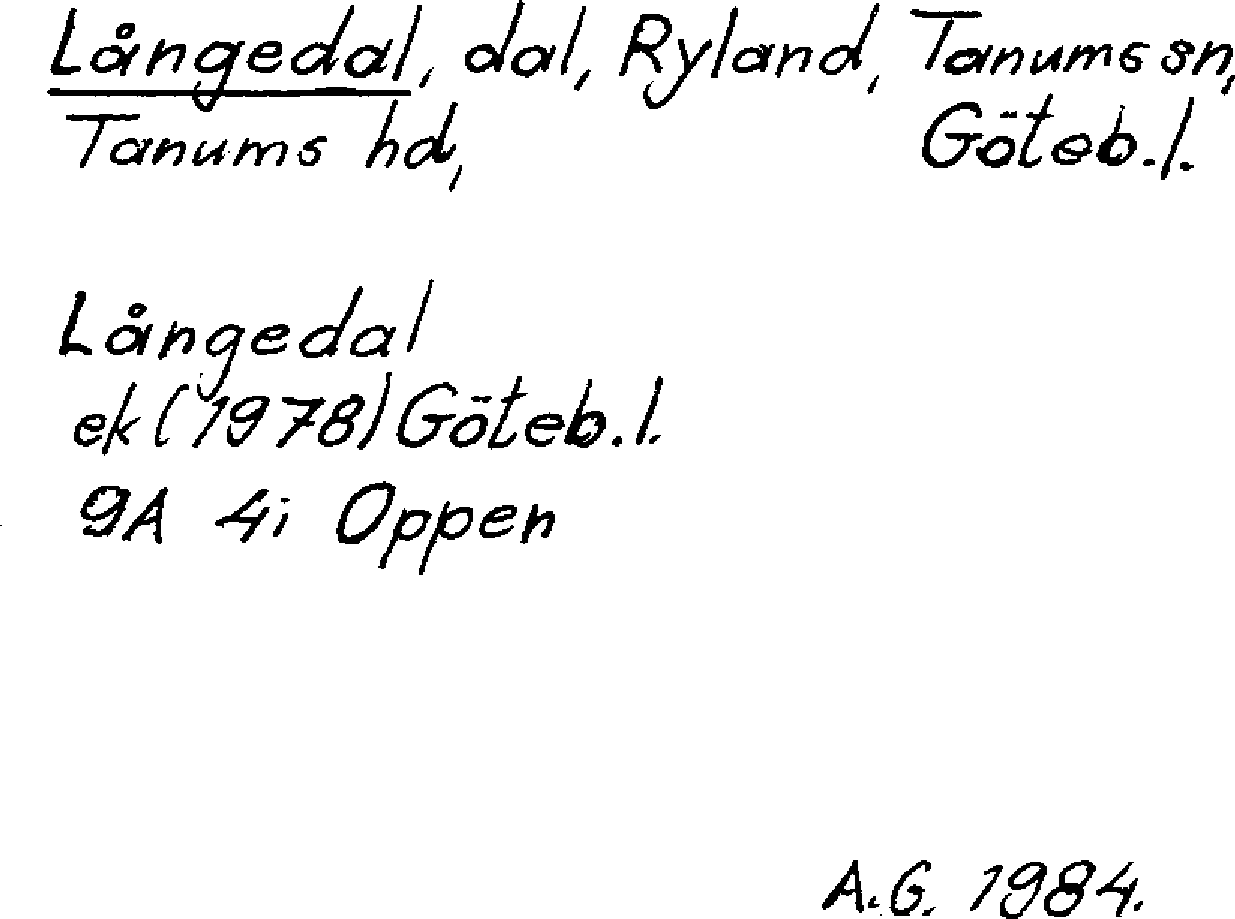 Långedal, dal, Ryland, Tanums sn,
Tanums hd, Göteb.l.
Långedal
ek (1978) Göteb.l.
9A 4i Oppen
A.G. 1984.